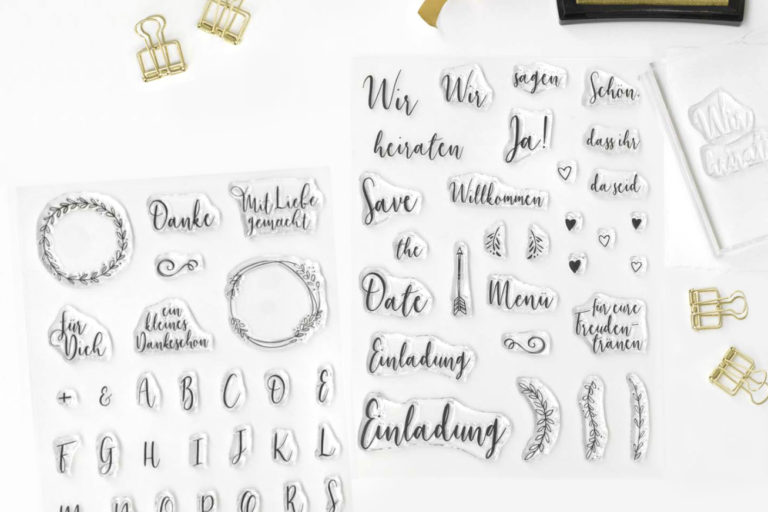 Danke
Mit Liebe
gemacht
für
Dich
ein
kleines
Dankeschön
+ & A B C D E
F G H I J K L
M N O P Q R S
Wir
heiraten
Wir
sagen
Ja!
Schön,
dass ihr
da seid
Save
the
Date
Willkommen
Menü
für eure
Freuden-
tränen
Einladung
Einladung
Wir
heiraten